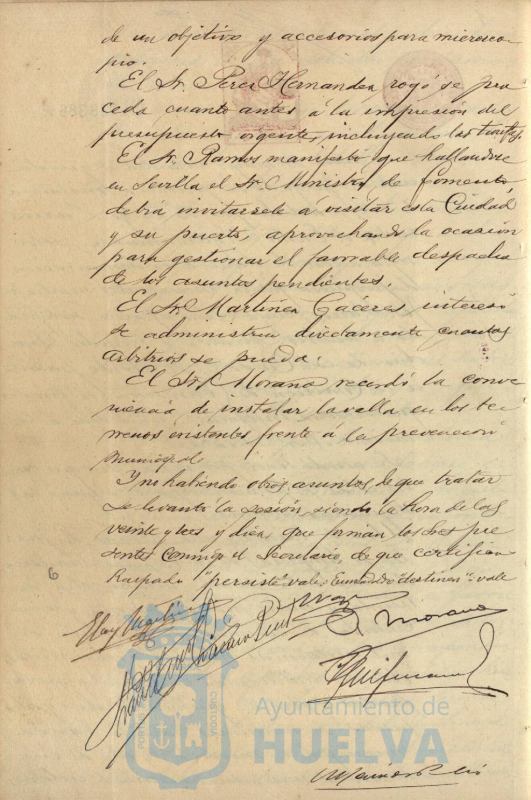 de un objetivo y accesorios para microsco
pio.
El Sr. Perez Hernandez rogó se pro
ceda cuanto antes á la impresión del
presupuesto vigente, incluyendo las tarifas.
El Sr. Ramos manifestó que hallandose
en Sevilla el Sr. Ministro de Fomento,
debia invitarsele á visitar esta Ciudad
y su puerto, aprovechando la ocasión
para gestionar el favorable despacho
de los asuntos pendientes.
El Sr. Martinez Cáceres, interesó
se administren directamente cuantos
arbitrios se pueda.
El Sr. Morano recordó la conve
niencia de instalar la valla en los te
rrenos existentes frente á la prevención
municipal.
Y no habiendo otros asuntos de que tratar
se levantó la sesión, siendo la hora de las
veinte y tres y diez, que firman los Sres pre
sentes conmigo el Secretario, de que certifico=
Raspado "persiste" vale, Enmendado "destinen"=vale
6
Morano
Ayuntamiento de
HUELVA